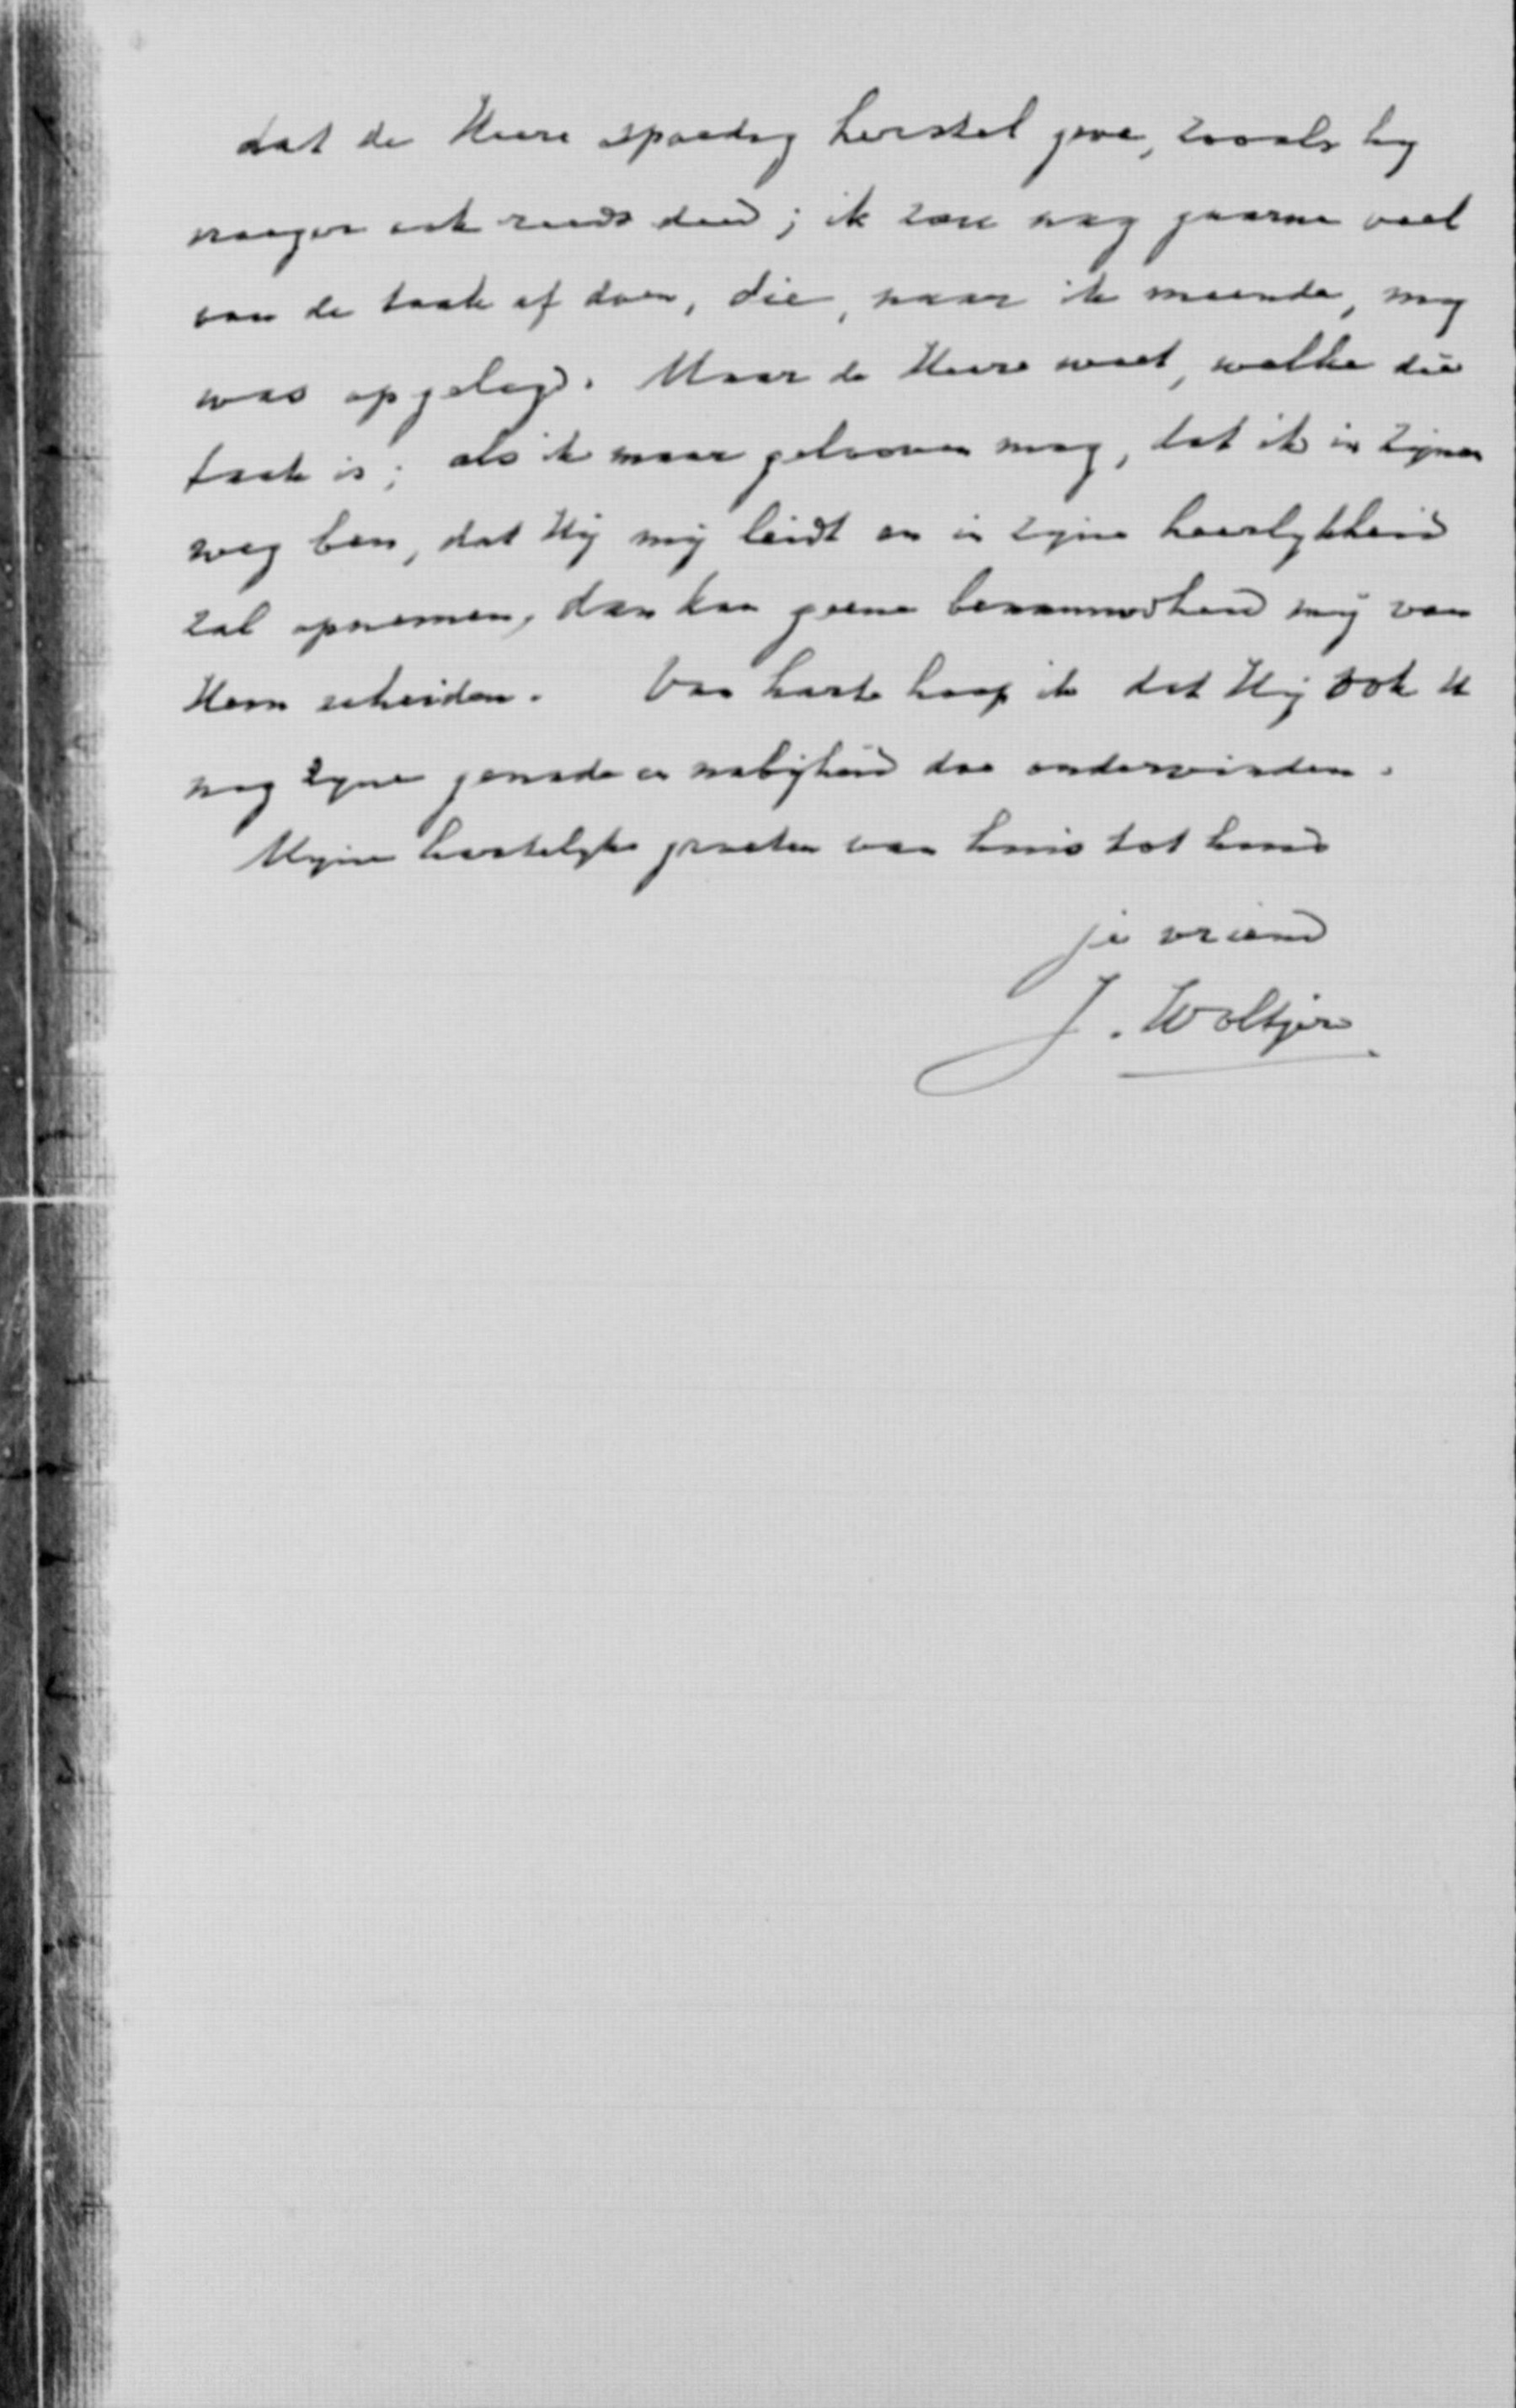 dat de Heere spoedig herstel geve, zooals hij
vroeger ook reeds deed; ik zou nog gaarne veel
van de taak af doen, die, naar ik meende, mij
was opgelegd. Maar de Heere weet, welke die
taak is; als ik maar gelooven mag, dat ik in zijnen
weg ben, dat Hij mij leidt en in zijne heerlijkheid
zal opnemen, dan kan geene benauwdheid mij van
Hem scheiden. Van harte hoop ik dat Hij ook U
nog zijne genade en nabijheid doe ondervinden.
Mijne hartelijke groeten van huis tot huis
je vriend
J. Woltjer